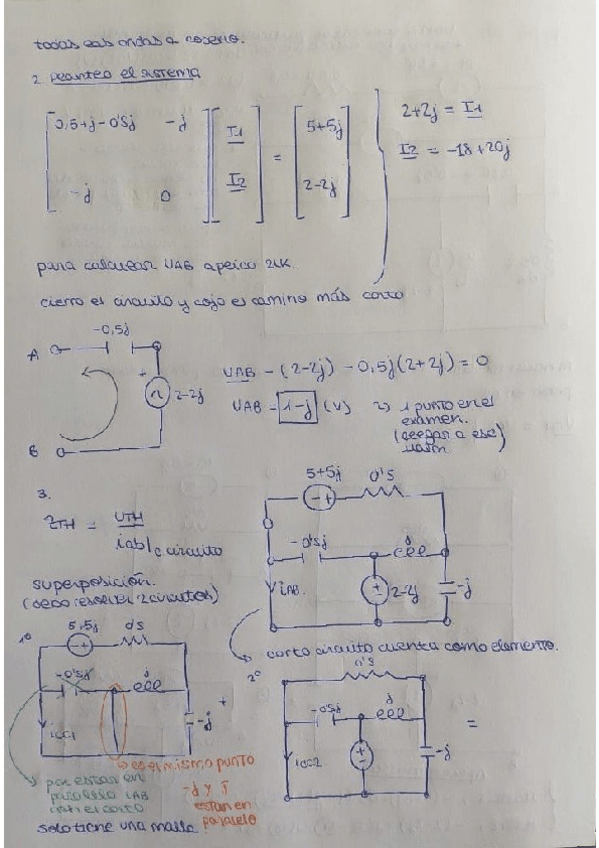 todas las ondas a coseno.
2. planteo el sistema
0,5+j-0'5j -j I1 = 5+5j
-j 0 I2 2-2j
2+2j = I1
I2 = -18+20j
para calcular UAB aplico 2LK.
cierro el circuito y cojo el camino más corto
-0,5j
A
+
2-2j
B
UAB - (2-2j) - 0,5j(2+2j) = 0
UAB = 1-j (V) 1 punto en el
examen.
(llegar a ese)
3.
ZTH = UTH
iab|circuito
superposición.
(debo resolver 2 circuitos)
5+5j 0'5
-+
-0'5j j
iAB. + 2-2j -j
-
corto circuito cuenta como elemento.
1º 5,5j 0'5
-+
-0'5j j
icc1 -j
+
es el mismo punto
por estar en
paralelo iAB
con el corto
-j y j
están en
paralelo
solo tiene una malla
2º 0'5
-0'5j j
icc2 + -j
-
=